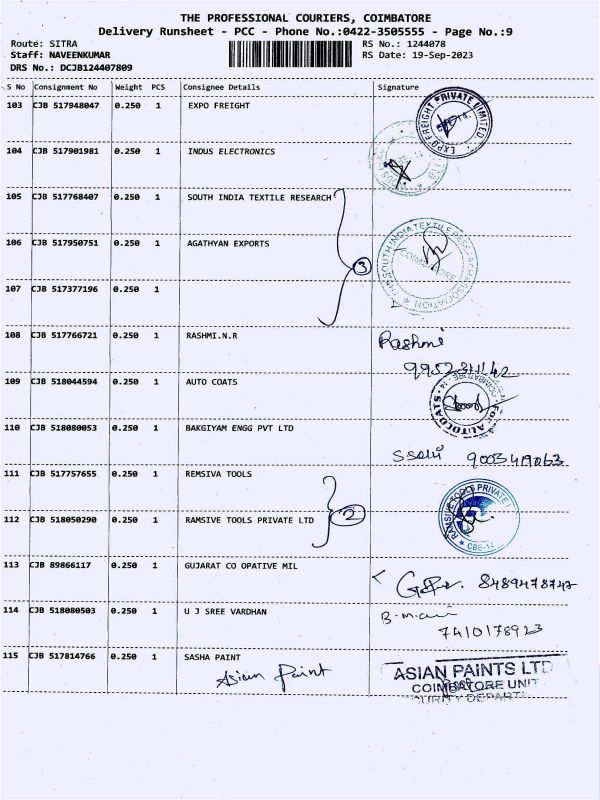 THE PROFESSIONAL COURIERS, COIMBATORE
Delivery Runsheet - PCC - Phone No.:0422-3505555 - Page No.:9
Route: SITRA RS No.: 1244078
Staff: NAVEENKUMAR RS Date: 19-Sep-2023
DRS No.: DCJB124407809
S No Consignment No Weight PCS Consignee Details Signature
103 CJB 517948047 0.250 1 EXPO FREIGHT
EXPO FREIGHT PRIVATE LIMITED
104 CJB 517901981 0.250 1 INDUS ELECTRONICS
105 CJB 517768407 0.250 1 SOUTH INDIA TEXTILE RESEARCH
106 CJB 517950751 0.250 1 AGATHYAN EXPORTS
SOUTH INDIA TEXTILE RESEARCH ASSOCIATION
COIMBATORE
3
107 CJB 517377196 0.250 1
108 CJB 517766721 0.250 1 RASHMI.N.R Rashmi
109 CJB 518044594 0.250 1 AUTO COATS
For AUTOCOATS
COIMBATORE - 14
110 CJB 518080053 0.250 1 BAKGIYAM ENGG PVT LTD
9003419063
111 CJB 517757655 0.250 1 REMSIVA TOOLS
112 CJB 518050290 0.250 1 RAMSIVE TOOLS PRIVATE LTD 2
RANSIVE TOOLS PRIVATE
CBE-14
113 CJB 89866117 0.250 1 GUJARAT CO OPATIVE MIL
8489478747
114 CJB 518080503 0.250 1 U J SREE VARDHAN
7410178923
115 CJB 517814766 0.250 1 SASHA PAINT
Asian Paint
ASIAN PAINTS LTD
COIMBATORE UNIT